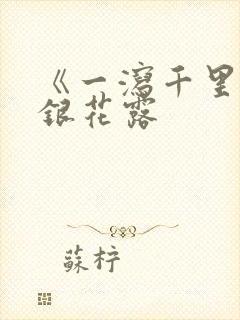 《一瀉千里
銀花露
蘇柠